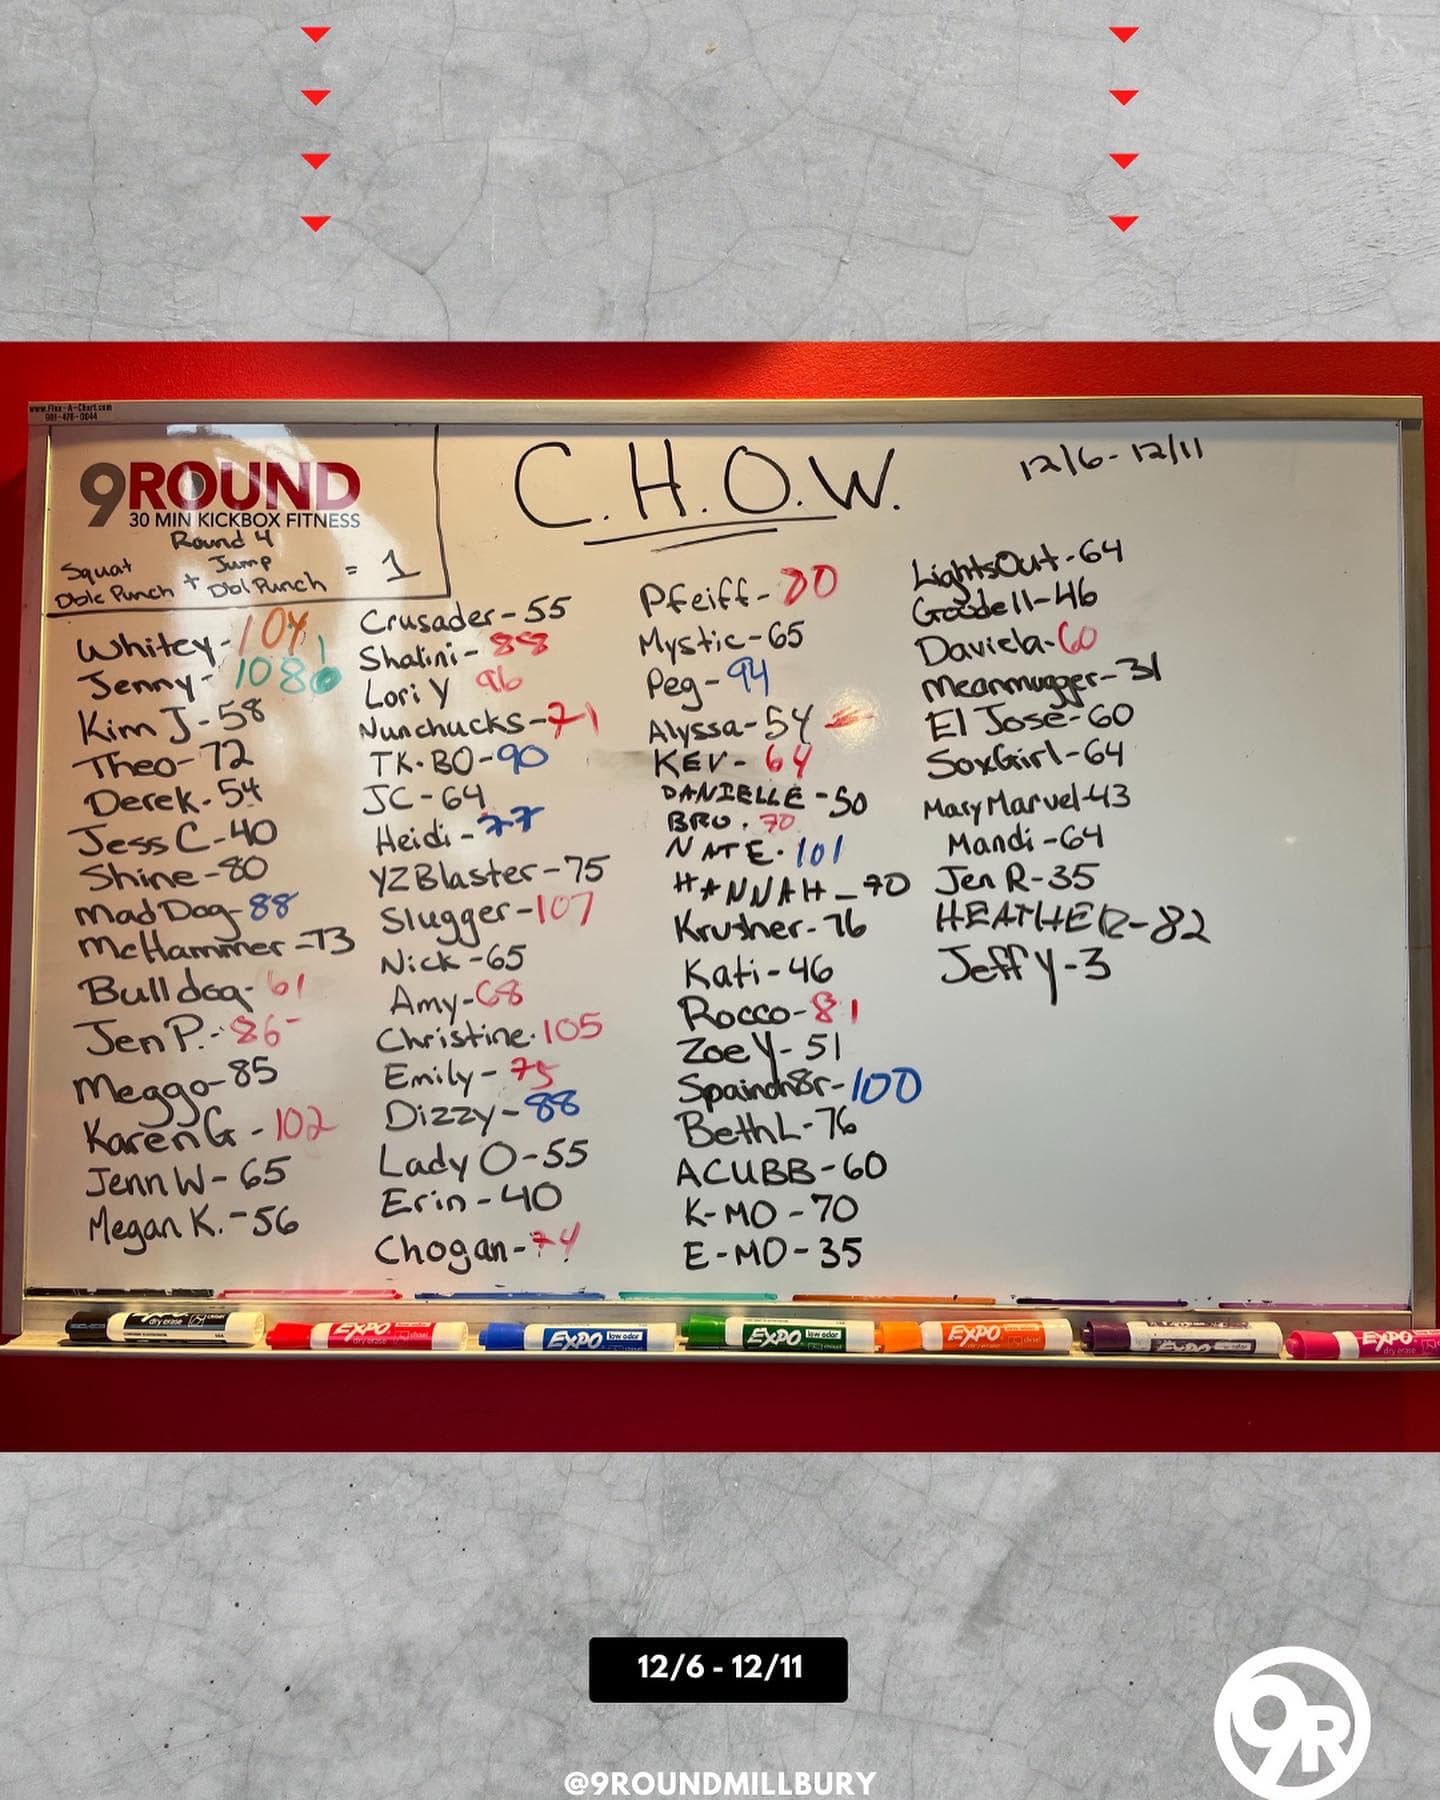 www.Flex-A-Chart.com
901-478-0044
9ROUND
30 MIN KICKBOX FITNESS
Round 4
Squat Dble Punch + Jump Dbl Punch = 1
C.H.O.W.
12/6 - 12/11
Whitey - 104
Jenny - 108
Kim J - 58
Theo - 72
Derek - 54
Jess C - 40
Shine - 80
Mad Dog - 88
McHammer - 73
Bulldog - 61
Jen P. - 86
Meggo - 85
Karen G - 102
Jenn W - 65
Megan K. - 56
Crusader - 55
Shalini - 88
Lori Y 96
Nunchucks - 71
TK-BO - 90
JC - 64
Heidi - 77
YZBlaster - 75
Slugger - 107
Nick - 65
Amy - 68
Christine - 105
Emily - 75
Dizzy - 88
Lady O - 55
Erin - 40
Chogan - 74
Pfeiff - 80
Mystic - 65
Peg - 94
Alyssa - 54
KEV - 64
DANIELLE - 50
BRO. 70
NATE - 101
HANNAH - 70
Krusher - 76
Kati - 46
Rocco - 81
Zoe Y - 51
Spainoh8r - 100
Beth L - 76
ACUBB - 60
K-MO - 70
E-MO - 35
LightsOut - 64
Goodell - 46
Daviela - 60
Meanmugger - 31
El Jose - 60
SoxGirl - 64
Mary Marvel - 43
Mandi - 64
Jen R - 35
HEATHER - 82
Jeff Y - 3
EXPO dry erase
EXPO dry erase chisel
EXPO low odor chisel
EXPO low odor
EXPO dry erase chisel
EXPO
EXPO dry erase
12/6 - 12/11
9R
@9ROUNDMILLBURY